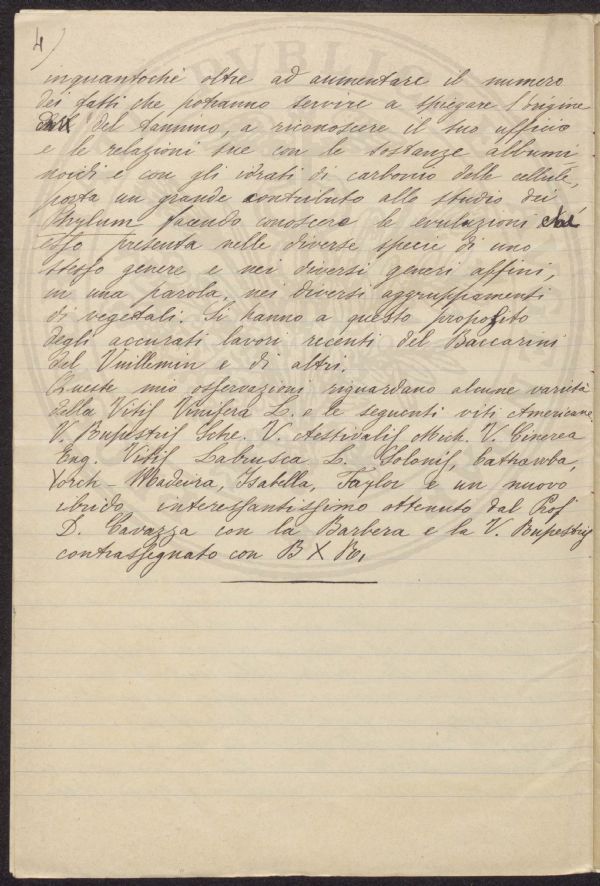 4)
inquantochè oltre ad aumentare il numero
dei fatti che potranno servire a spiegare l'origine
del tannino, a riconoscere il suo ufficio
e le relazioni sue con le sostanze albumi-
noidi e con gli idrati di carbonio delle cellule,
porta un grande contributo allo studio dei
Phylum facendo conoscere le evoluzioni che
esso presenta nelle diverse specie di uno
stesso genere e nei diversi generi affini,
in una parola, nei diversi aggruppamenti
di vegetali. Si hanno a questo proposito
degli accurati lavori recenti del Baccarini
del Vuillemin e di altri.
Queste mie osservazioni riguardano alcune varietà
della Vitis Vinifera L. e le seguenti viti Americane
V. Rupestris Sche. V. Aestivalis Mich. V. Cinerea
Eng. Vitis Labrusca L. Solonis, Cathawba,
Yorch-Madeira, Isabella, Taylor e un nuovo
ibrido interessantissimo ottenuto dal Prof
D. Cavazza con la Barbera e la V. Rupestris
contrassegnato con B X